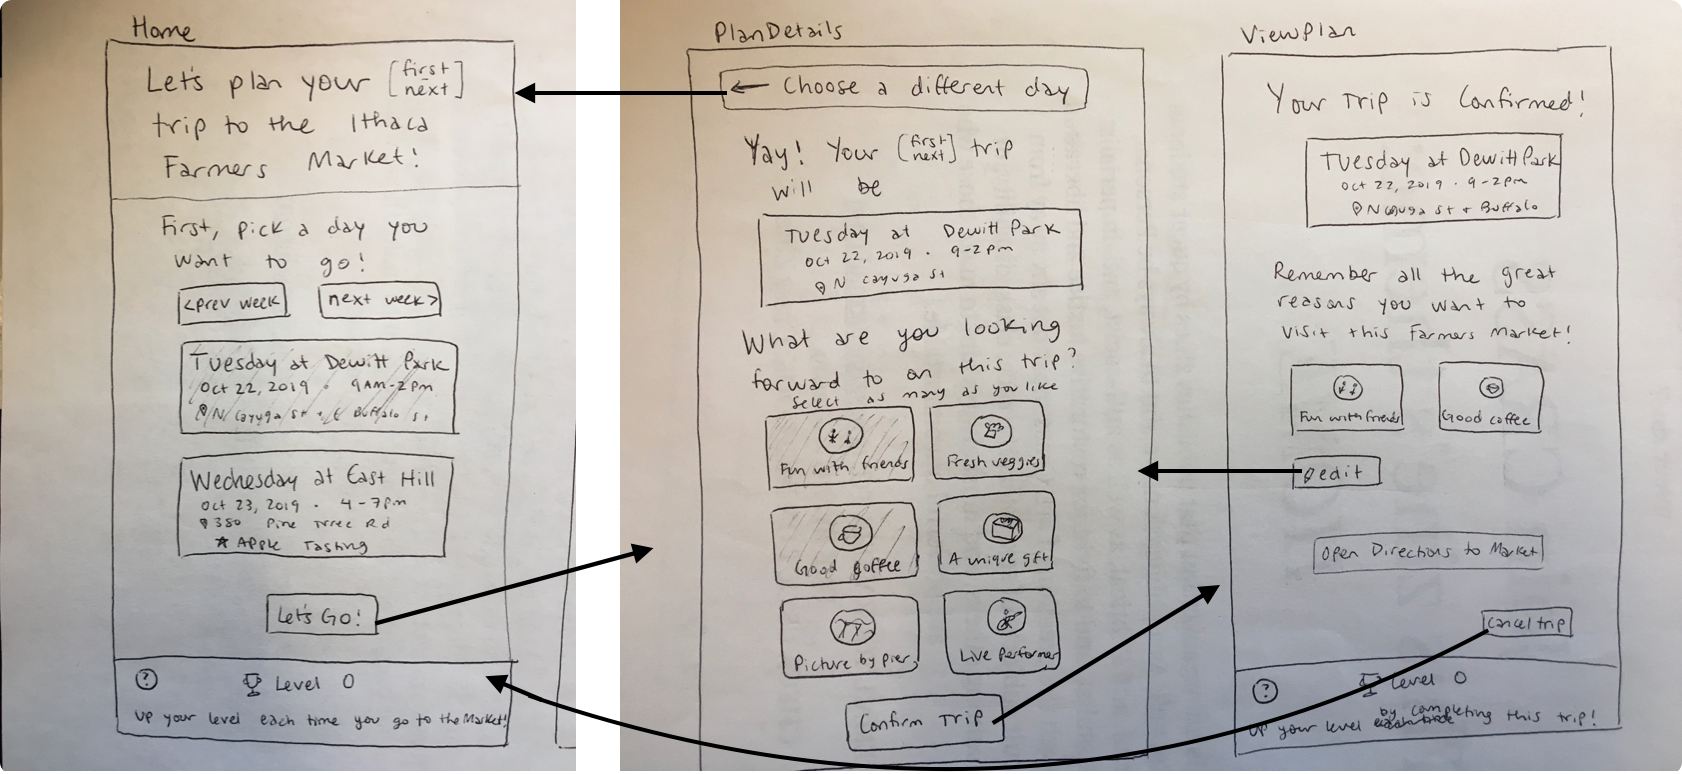 Home
Let's plan your [first
next]
trip to the Ithaca
Farmers Market!
First, pick a day you
want to go!
<prev week
next week>
Tuesday at Dewitt Park
Oct 22, 2019 · 9AM-2pm
N Cayuga St + E Buffalo St
Wednesday at East Hill
Oct 23, 2019 · 4-7pm
380 Pine Tree Rd
★ Apple Tasting
Let's Go!
?
Level 0
Up your level each time you go to the Market!
PlanDetails
← Choose a different day
Yay! Your [first
next] trip
will be
Tuesday at Dewitt Park
Oct 22, 2019 · 9-2pm
N Cayuga St
What are you looking
forward to on this trip?
Select as many as you like
Fun with friends
Fresh veggies
Good coffee
A unique gift
Picture by pier
Live Performer
Confirm Trip
ViewPlan
Your Trip is Confirmed!
Tuesday at Dewitt Park
Oct 22, 2019 · 9-2pm
N Cayuga St + Buffalo
Remember all the great
reasons you want to
visit this Farmers Market!
Fun with friends
Good coffee
edit
Open Directions to Market
Cancel trip
?
Level 0
Up your level by completing this trip!